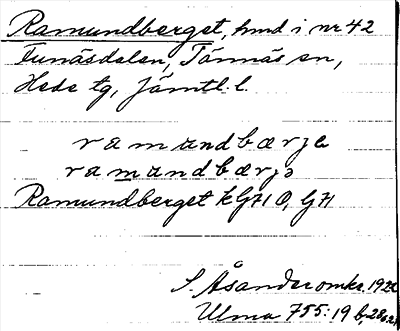 Ramundberget, hmd i nr 42
Funäsdalen, Tännäs sn,
Hede tg, Jämtl. l.
ramundbærje
ramundbærjə
Ramundberget kGH 0, GH
S. Åsander omkr. 192
Ulma 755:19 b, 28